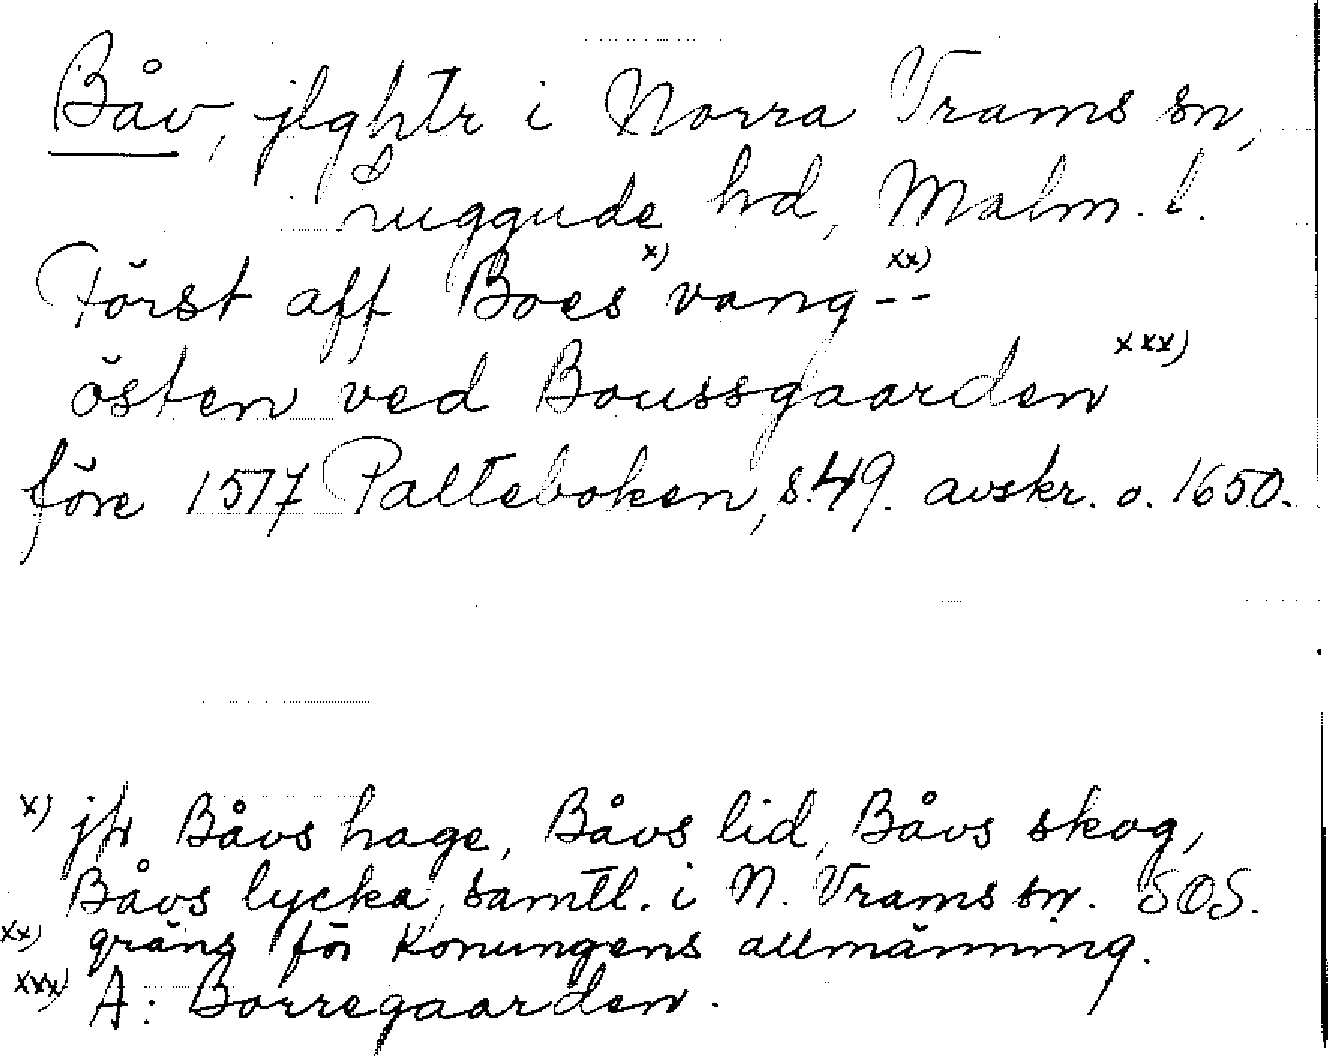 Båv, jlghtr i Norra Vrams sn,
Luggude hd, Malm. l.
Först aff Boes x) vang-- xx)
östen ved Boussgaarden xxx)
före 1577 Palteboken, s. 49. avskr. o. 1650.
x) jfr Båvs hage, Båvs lid, Båvs skog,
Båvs lycka, samtl. i N. Vrams sn. SOS.
xx) gräns för Konungens allmänning.
xxx) A: Borregaarden.